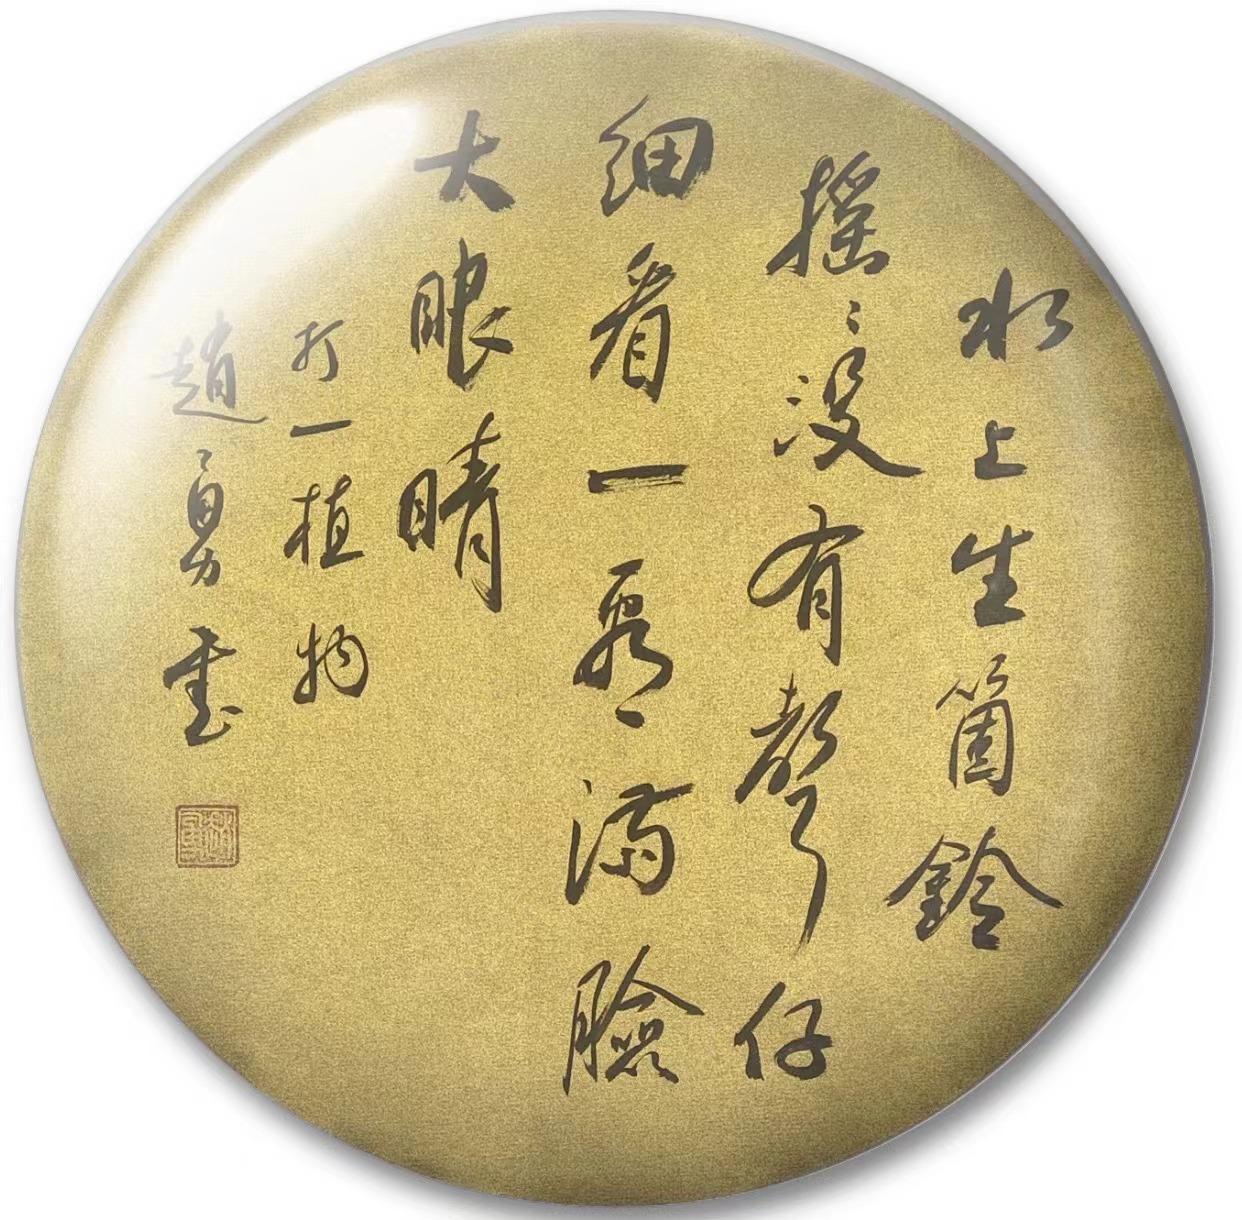 水上生箇鈴
搖〻沒有聲仔
細看一看滿臉
大眼睛
打一植物
趙勇書